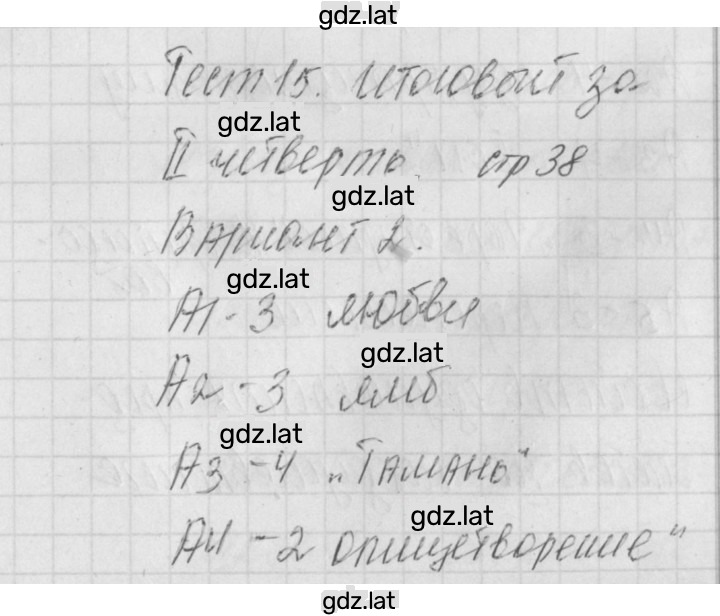 gdz.lat
Тест 15. Итоговый за
gdz.lat
II четверть. стр 38
gdz.lat
Вариант 2.
gdz.lat
А1 - 3 любви
gdz.lat
А2 - 3 ямб
gdz.lat
А3 - 4 „Тамань"
gdz.lat
А4 - 2 олицетворение"
gdz.lat